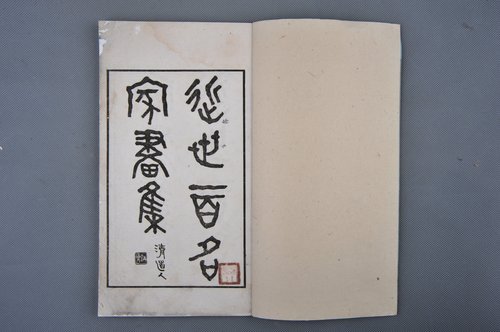 近世一百名
家畫集
清道人